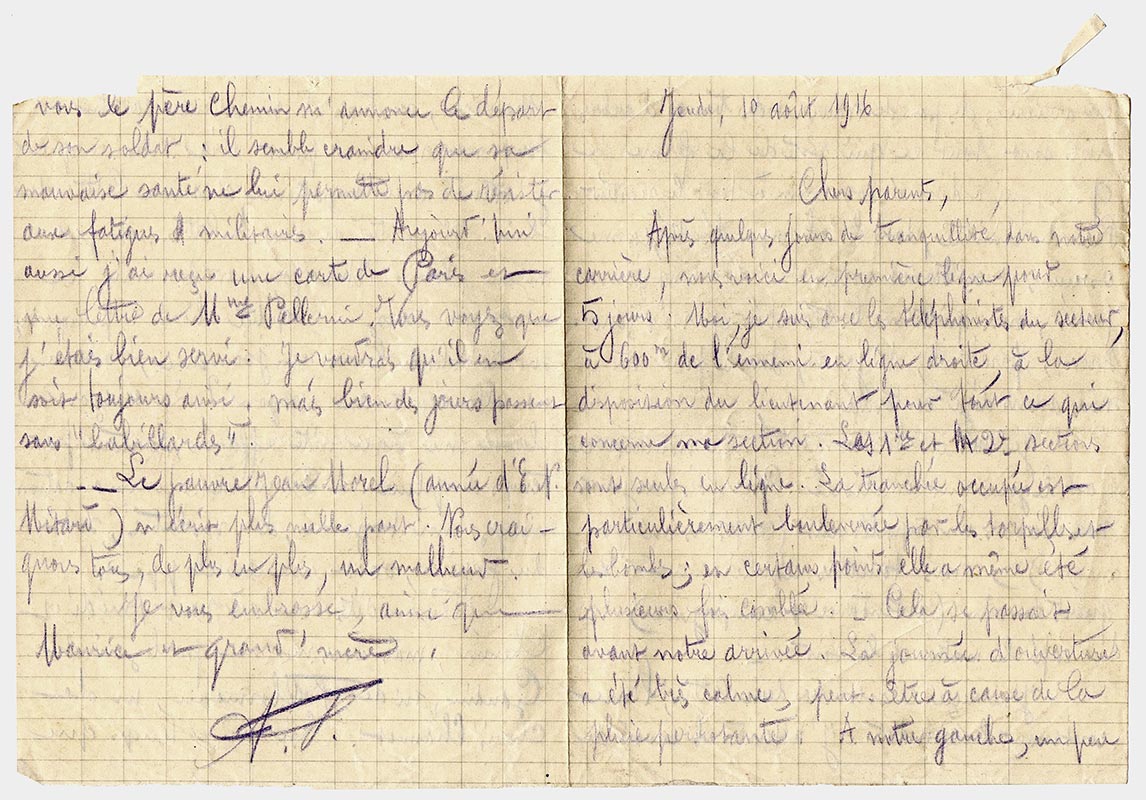 Jeudi, 10 août 1916
Chers parents,
Après quelques jours de tranquillité dans notre
carrière, nous voici en première ligne pour
5 jours. Moi, je suis avec les téléphonistes du secteur,
à 600m de l'ennemi en ligne droite, à la
disposition du lieutenant pour tout ce qui
concerne ma section. Les 1re et 2e sections
sont seules en ligne. La tranchée occupée est
particulièrement bouleversée par les torpilles et
les bombes ; en certains points elle a même été
plusieurs fois comblée. Cela se passait
avant notre arrivée. La journée d'ouverture
a été très calme, peut-être à cause de la
pluie persistante. A notre gauche, un peu
vous le père Chemin m'annonce le départ
de son soldat : il semble craindre que sa
mauvaise santé ne lui permette pas de résister
aux fatigues militaires. — Aujourd'hui
aussi j'ai reçu une carte de Paris et
une lettre de Mme Pellerin. Vous voyez que
j'étais bien servi. Je voudrais qu'il en
soit toujours ainsi, mais bien des jours passent
sans "babillardes".
— Le pauvre Jean Morel (année d'E.N.
Mitard) n'écrit plus nulle part. Nous crai-
gnons tous, de plus en plus, un malheur.
Je vous embrasse, ainsi que
Maurice et grand'mère.